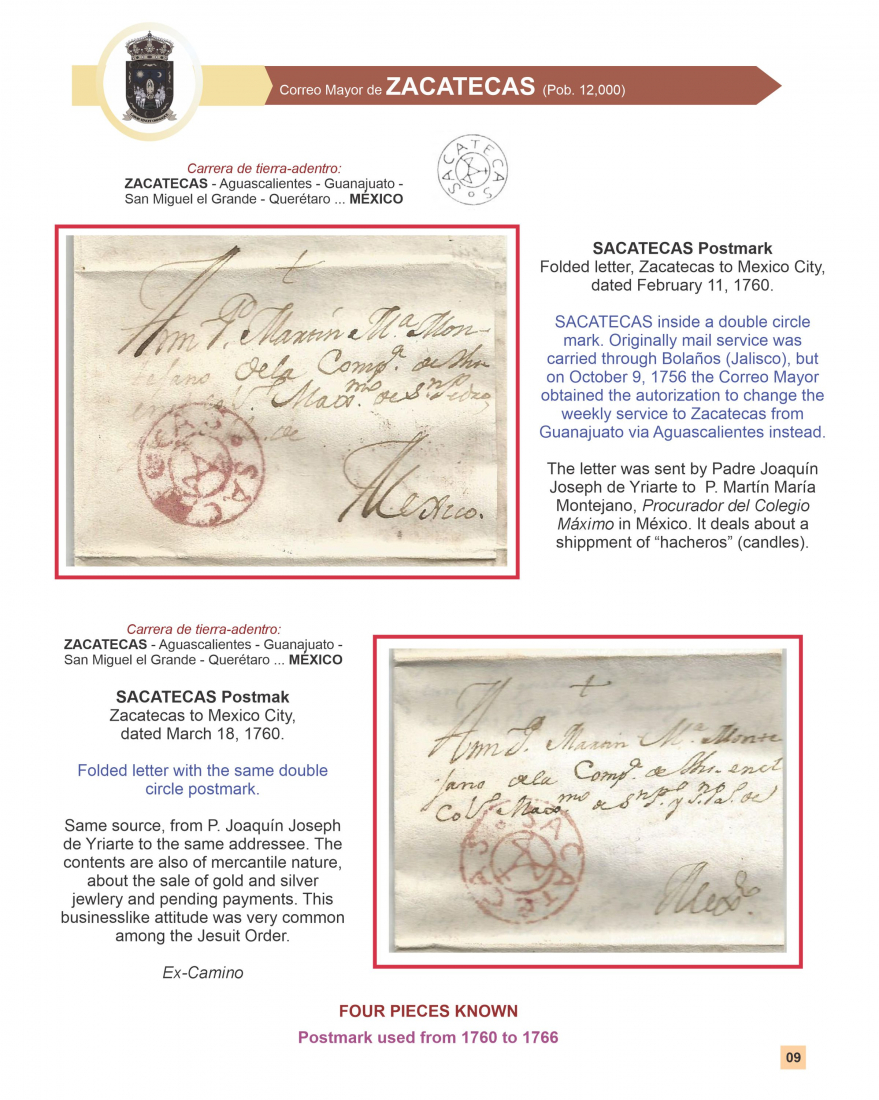 Correo Mayor de ZACATECAS (Pob. 12,000)
Carrera de tierra-adentro:
ZACATECAS - Aguascalientes - Guanajuato -
San Miguel el Grande - Querétaro ... MÉXICO
SACATECAS
SACATECAS Postmark
Folded letter, Zacatecas to Mexico City,
dated February 11, 1760.
SACATECAS inside a double circle
mark. Originally mail service was
carried through Bolaños (Jalisco), but
on October 9, 1756 the Correo Mayor
obtained the autorization to change the
weekly service to Zacatecas from
Guanajuato via Aguascalientes instead.
The letter was sent by Padre Joaquín
Joseph de Yriarte to P. Martín María
Montejano, Procurador del Colegio
Máximo en México. It deals about a
shippment of “hacheros” (candles).
Amn P. Martín Mª Mon-
jano de la Compª. de
de
Mexico.
SACATECAS
Carrera de tierra-adentro:
ZACATECAS - Aguascalientes - Guanajuato -
San Miguel el Grande - Querétaro ... MÉXICO
SACATECAS Postmak
Zacatecas to Mexico City,
dated March 18, 1760.
Folded letter with the same double
circle postmark.
Same source, from P. Joaquín Joseph
de Yriarte to the same addressee. The
contents are also of mercantile nature,
about the sale of gold and silver
jewlery and pending payments. This
businesslike attitude was very common
among the Jesuit Order.
Ex-Camino
Amn P. Martin Mª Monte
jano de la Compª. de
SACATECAS
Mexco.
FOUR PIECES KNOWN
Postmark used from 1760 to 1766
09